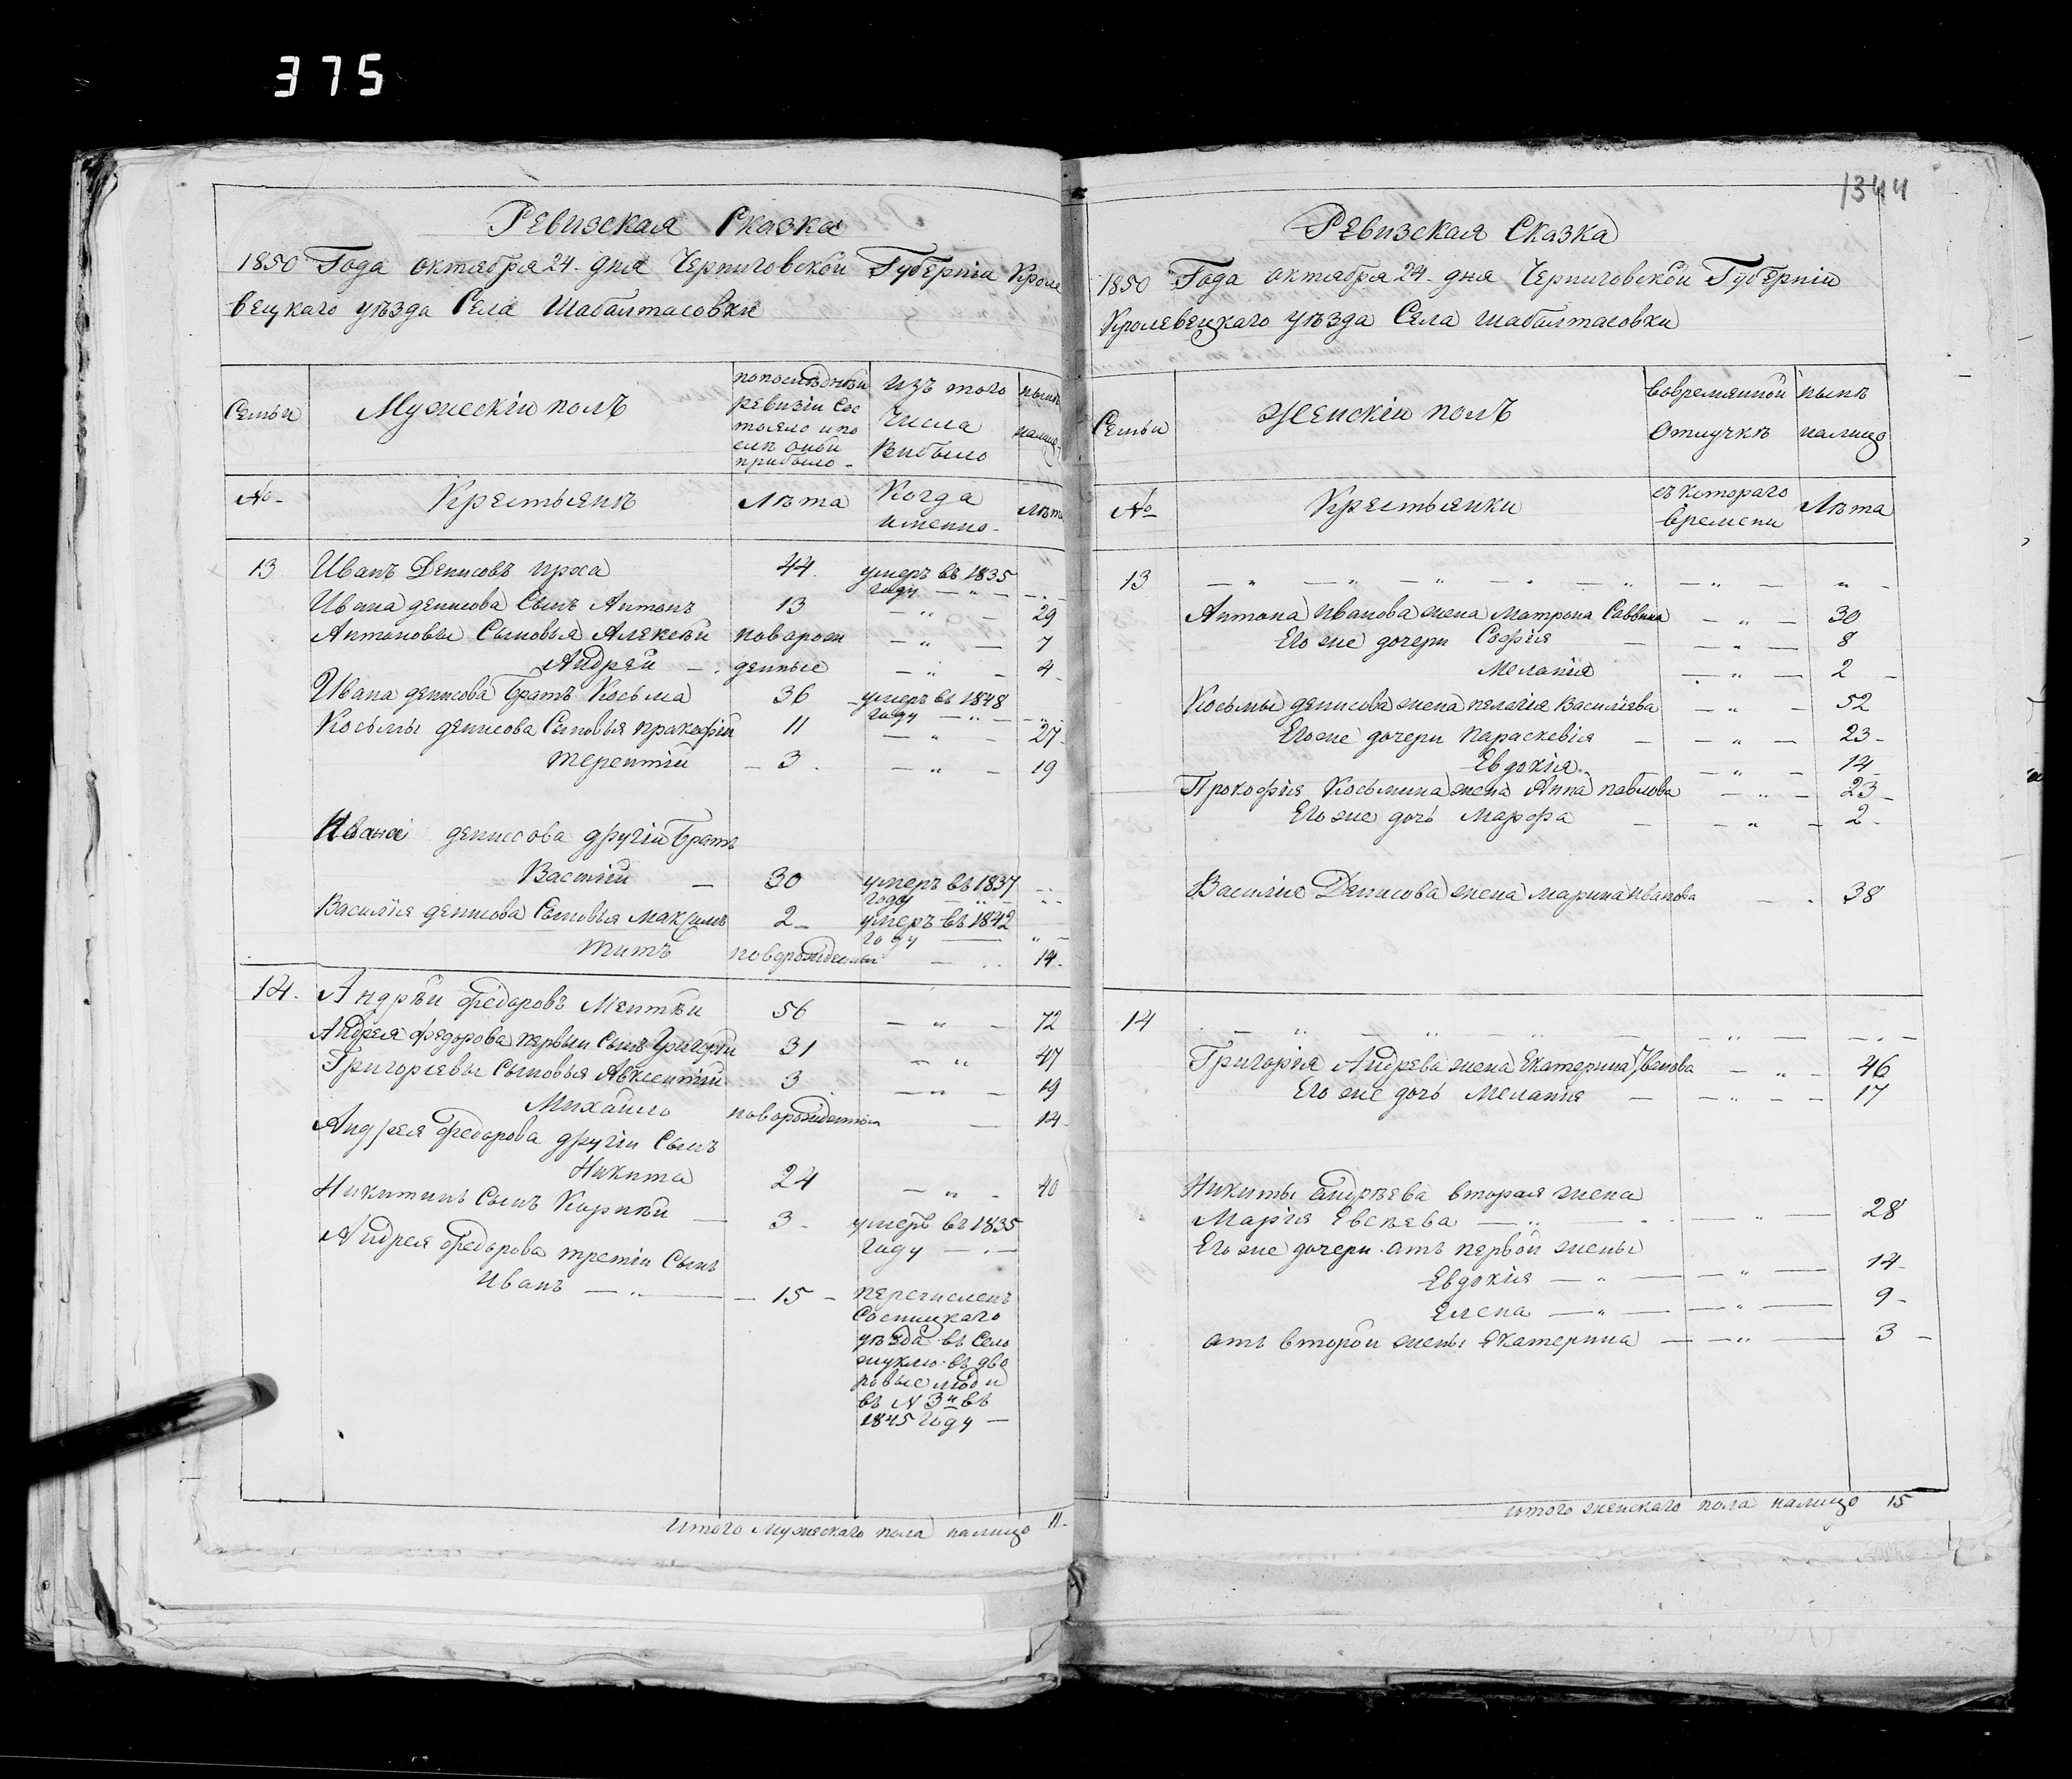 375
Ревизская Сказка
1850 Года октября 24. дня Черниговской Губерніи Кроле
вецкаго уѣзда Села Шабалтасовки
Семьи
Мужескій полъ
по послѣдней
ревизіи Сос
тояло и по
слѣ оной
прибыло -
изъ того
Числа
Выбыло
нынѣ
налицо
№
Крестьянѣ
Лѣта
Когда
именно -
Лѣта
13 Иванъ Денисовъ 44. умеръ въ 1835
году — " —
Ивана денисова Сынъ Антонъ 13 — " — 29
Антоновы Сыновья Алексѣй новорож — " — 7
Андрей — денные — " — 4
Ивана денисова Братъ Косьма 36 умеръ въ 1848
году — " —
Косьмы денисова Сыновья пракофій 11 — " — 27
терентій — 3. — " — 19
Ивана денисова другій Братъ
Василій — 30 умеръ въ 1837
году — " —
Василія денисова Сыновья максимъ 2 — умеръ въ 1842
году — " —
титъ новорожденный — 14.
14. Андрѣй федоровъ 56 — " — 72
Андрея федорова первый Сынъ Григорій 31 — " — 47
Григорьевы Сыновья Авксентій 3 — " — 19
Михайло новорожденный — 14.
Андрея федорова другій Сынъ
Никита 24 — " — 40
Никитинъ Сынъ Корнѣй — 3 — умеръ въ 1835
году — " —
Андрея федорова третій Сынъ
Иванъ — " — 15 — перечисленъ
Сосницкаго
уѣзда въ Село
жуклю въ дво
ровые люди
въ N 3й въ
1845 году —
Итого мужескаго пола налицо 11.
1344
Ревизская Сказка
1850 Года октября 24. дня Черниговской Губерніи
Кролевецкаго уѣзда Села шабалтасовки
Семьи
Женскій полъ
вовременной
отлучкѣ
нынѣ
налицо
№
Крестьянки
съ котораго
времени
Лѣта
13 — " — " — " — " — " —
Антона иванова жена Матрона Саввина — " — 30
Его же дочери Софія — — " — 8
Меланія — " — 2
Косьмы денисова жена пелагія Василіева — " — 52
Его же дочери параскевія — — " — 23
Евдокія — " — 14
Прокофія Косьмина жена Анна павлова — " — 23
Его же дочь Марфа — — " — 2
Василія Денисова жена марина иванова — 38
14 — " — " — " — " —
Григорія Андрѣева жена Екатерина Иванова — " — 46
Его же дочь Меланія — — " — 17
Никиты андрѣева вторая жена
Марія Евсѣева — " — — " — 28
Его же дочери отъ первой жены
Евдокія — " — — " — 14
Елена — " — — " — 9
отъ второй жены Екатерина — — " — 3
итого женскаго пола налицо 15